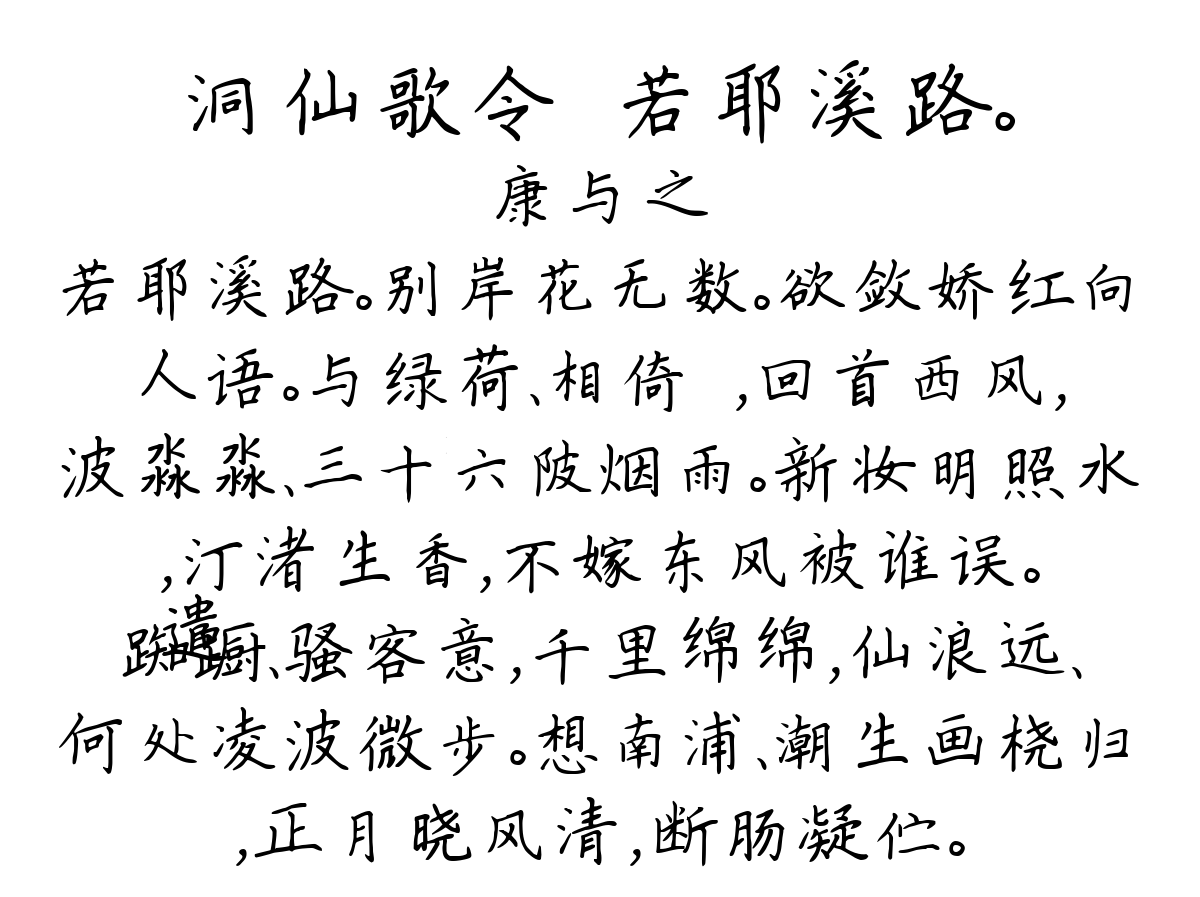 洞仙歌令 若耶溪路。
康与之
若耶溪路。别岸花无数。欲敛娇红向
人语。与绿荷、相倚 ,回首西风,
波淼淼、三十六陂烟雨。新妆明照水
,汀渚生香,不嫁东风被谁误。
遣踟蹰、骚客意,千里绵绵,仙浪远、
何处凌波微步。想南浦、潮生画桡归
,正月晓风清,断肠凝伫。